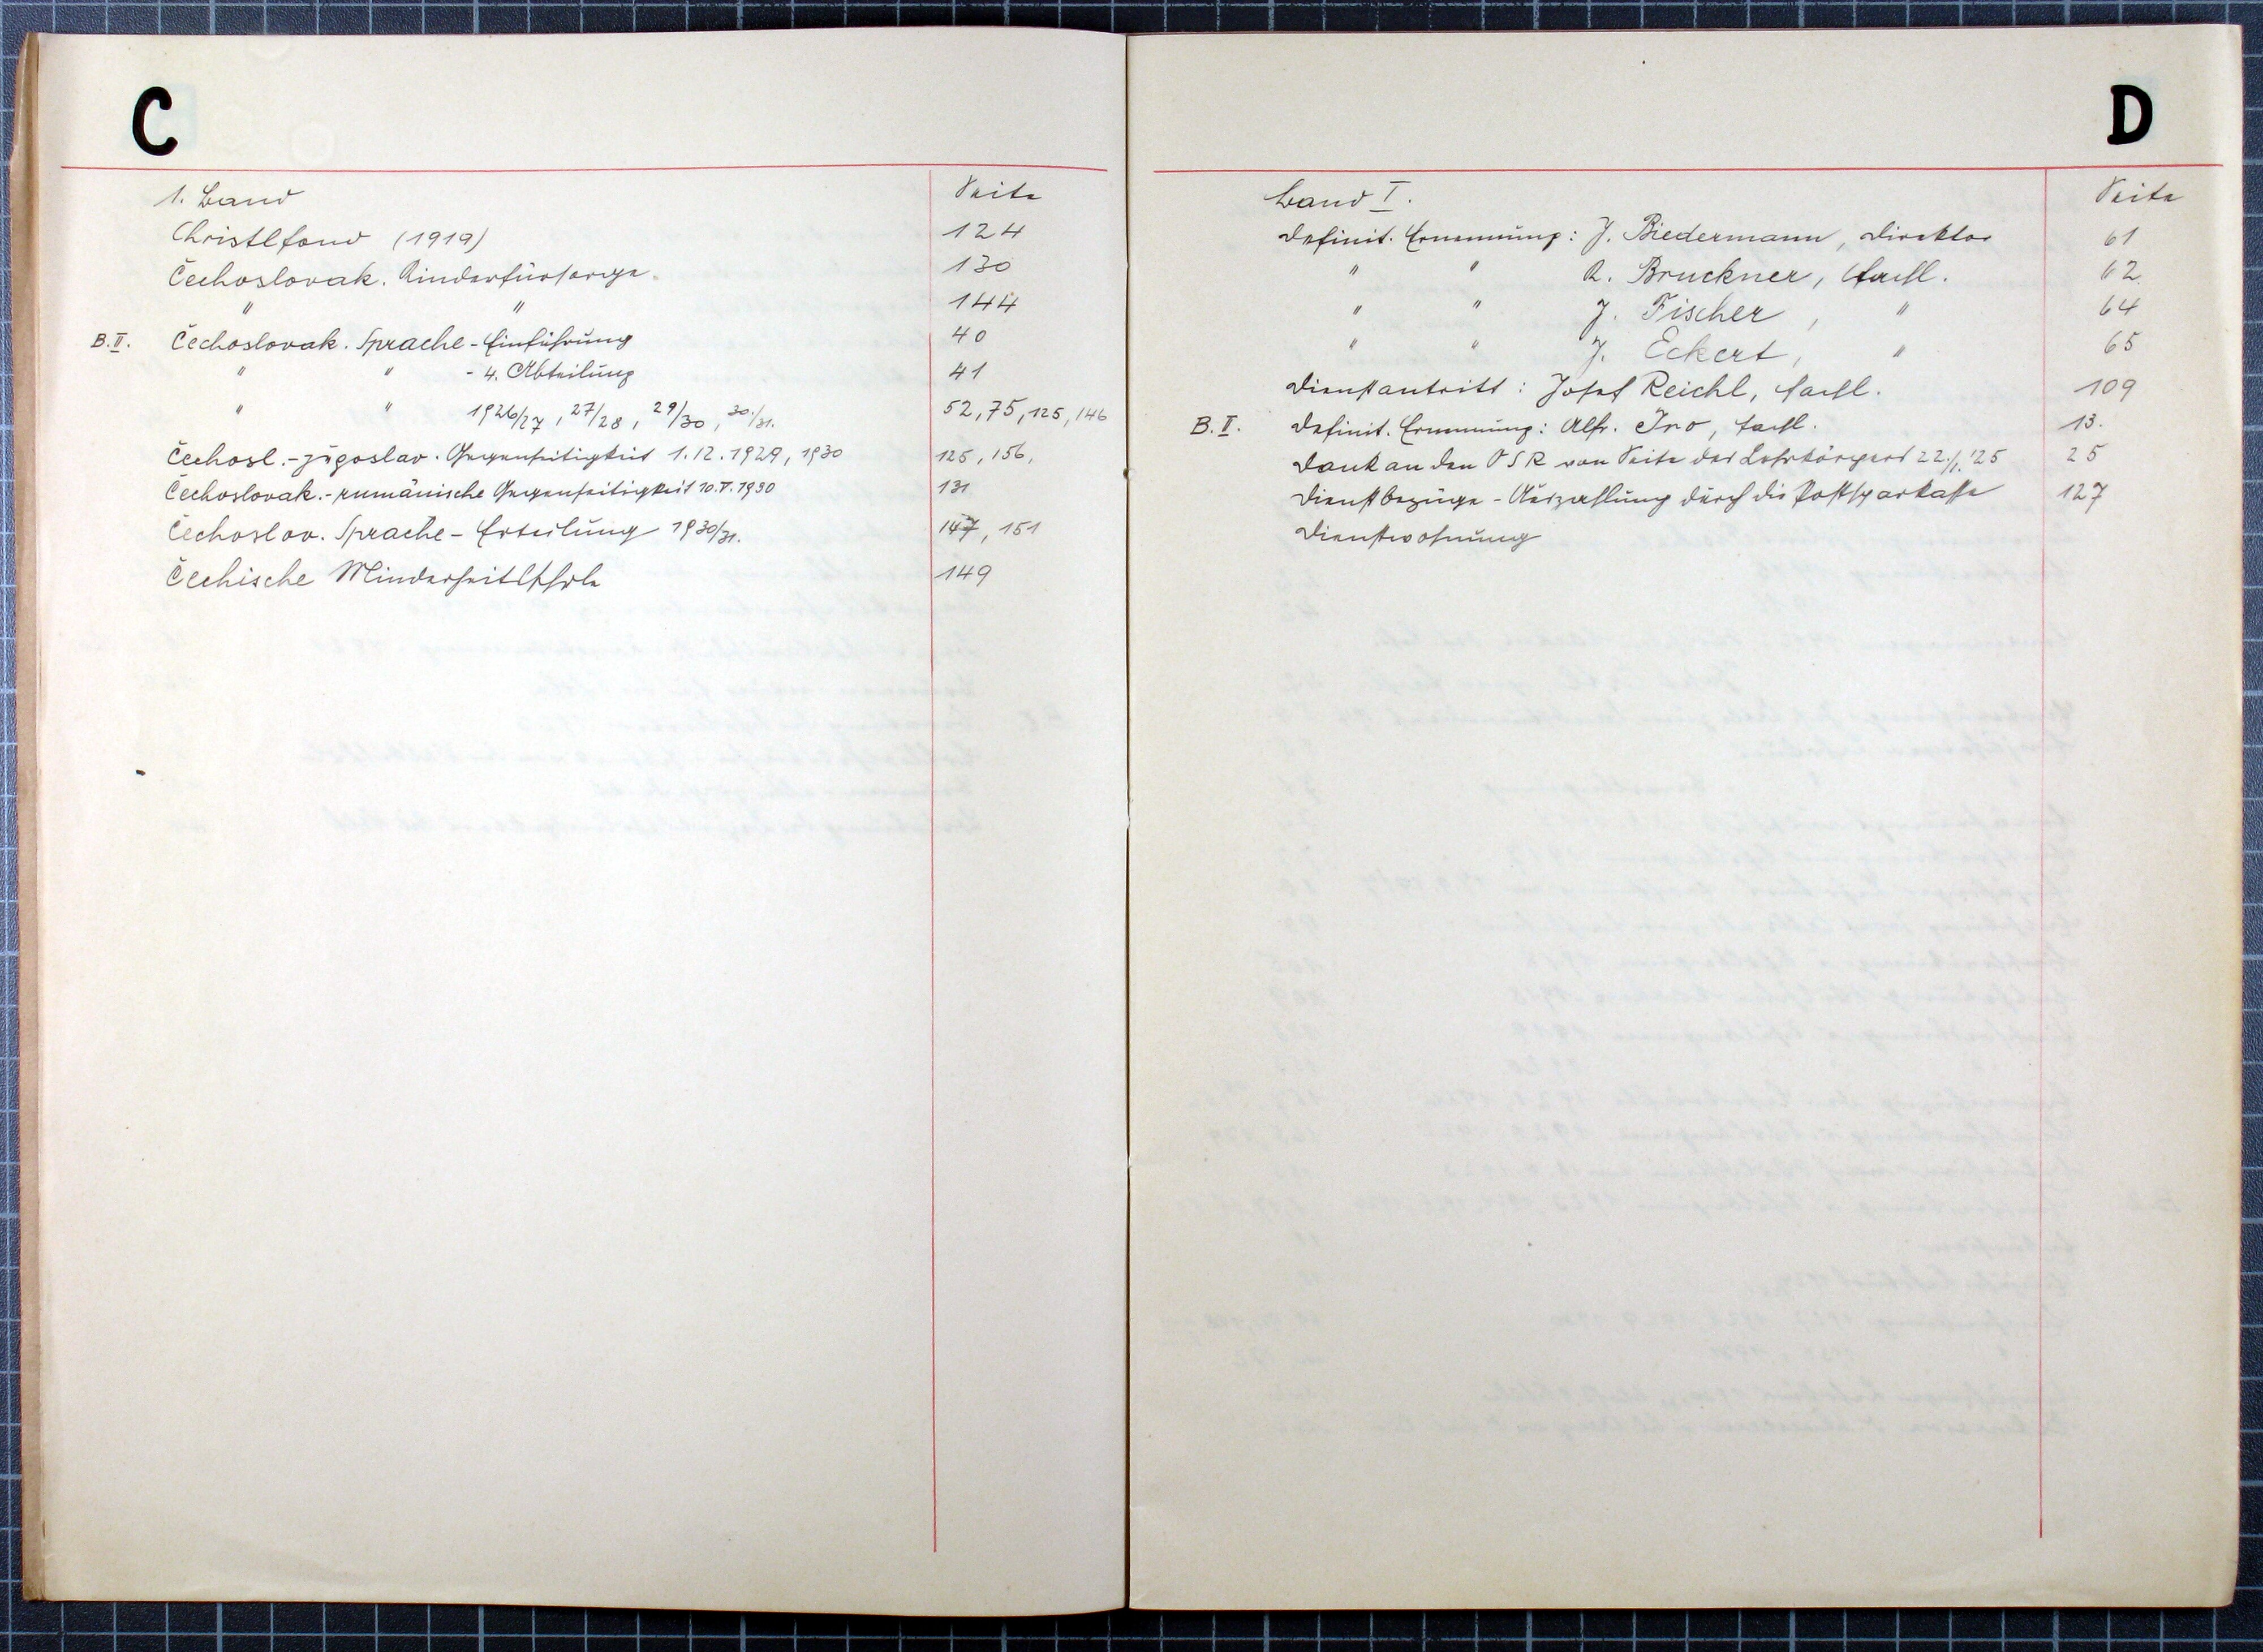 C
1. Band Seite
Christlfond (1919) 124
Čechoslovak. Kinderfürsorge. 130
" " 144
B.II. Čechoslovak. Sprache - Einführung 40
" " - 4. Abteilung 41
" " 1926/27, 27/28, 29/30, 30./31. 52, 75, 125, 146
Čechosl.-jugoslav. Gegenseitigkeit 1.12.1929, 1930 125, 156,
Čechoslovak.-rumänische Gegenseitigkeit 10.V.1930 131
Čechoslov. Sprache - Erteilung 1930/31. 147, 151
Čechische Minderheitsschule 149
D
Band I. Seite
Definit. Ernennung: J. Biedermann, Direktor 61
" " R. Bruckner, Fachl. 62
" " J. Fischer, " 64
" " J. Eckert, " 65
Dienstantritt: Josef Reichl, Fachl. 109
B.II. Definit. Ernennung: Alfr. Iro, Fachl. 13.
Dank an den OSR von Seite des Lehrkörpers 22./1.'25 25
Dienstbezüge - Auszahlung durch die Postsparkasse 127
Dienstwohnung